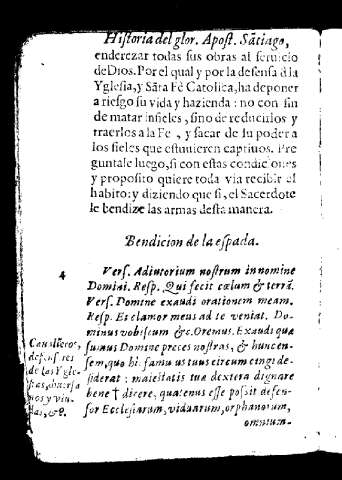 Historia del glor. Apost. Sãtiago,
enderezar todas sus obras al seruicio
de Dios. Por el qual y por la defensa d̃ la
Yglesia, y Sãta Fè Catolica, ha de poner
a riesgo su vida y hazienda: no con fin
de matar infieles, sino de reduzirlos y
traerlos a la Fe, y sacar de su poder a
los fieles que estuuieren captiuos. Pre
guntale luego, si con estas condiciones
y proposito quiere toda via recibir el
habito: y diziendo que si, el Sacerdote
le bendize las armas desta manera.
Bendicion de la espada.
4
Vers. Adiutorium nostrum in nomine
Domini. Resp. Qui fecit cœlum & terrã.
Vers. Domine exaudi orationem meam.
Resp. Et clamor meus ad te veniat. Do-
minus vobiscum &c. Oremus. Exaudi quæ
sumus Domine preces nostras, & hunc en-
sem, quo hic famulus tuus circumcingi de-
siderat: maiestatis tuæ dextera dignare
bene † dicere, quatenus esse possit defen-
sor Ecclesiarum, viduarum, orphanorum,
omnium-
Caualleros,
defensores
de las Ygle-
sias, huerfa
nos y viu-
das, &c.